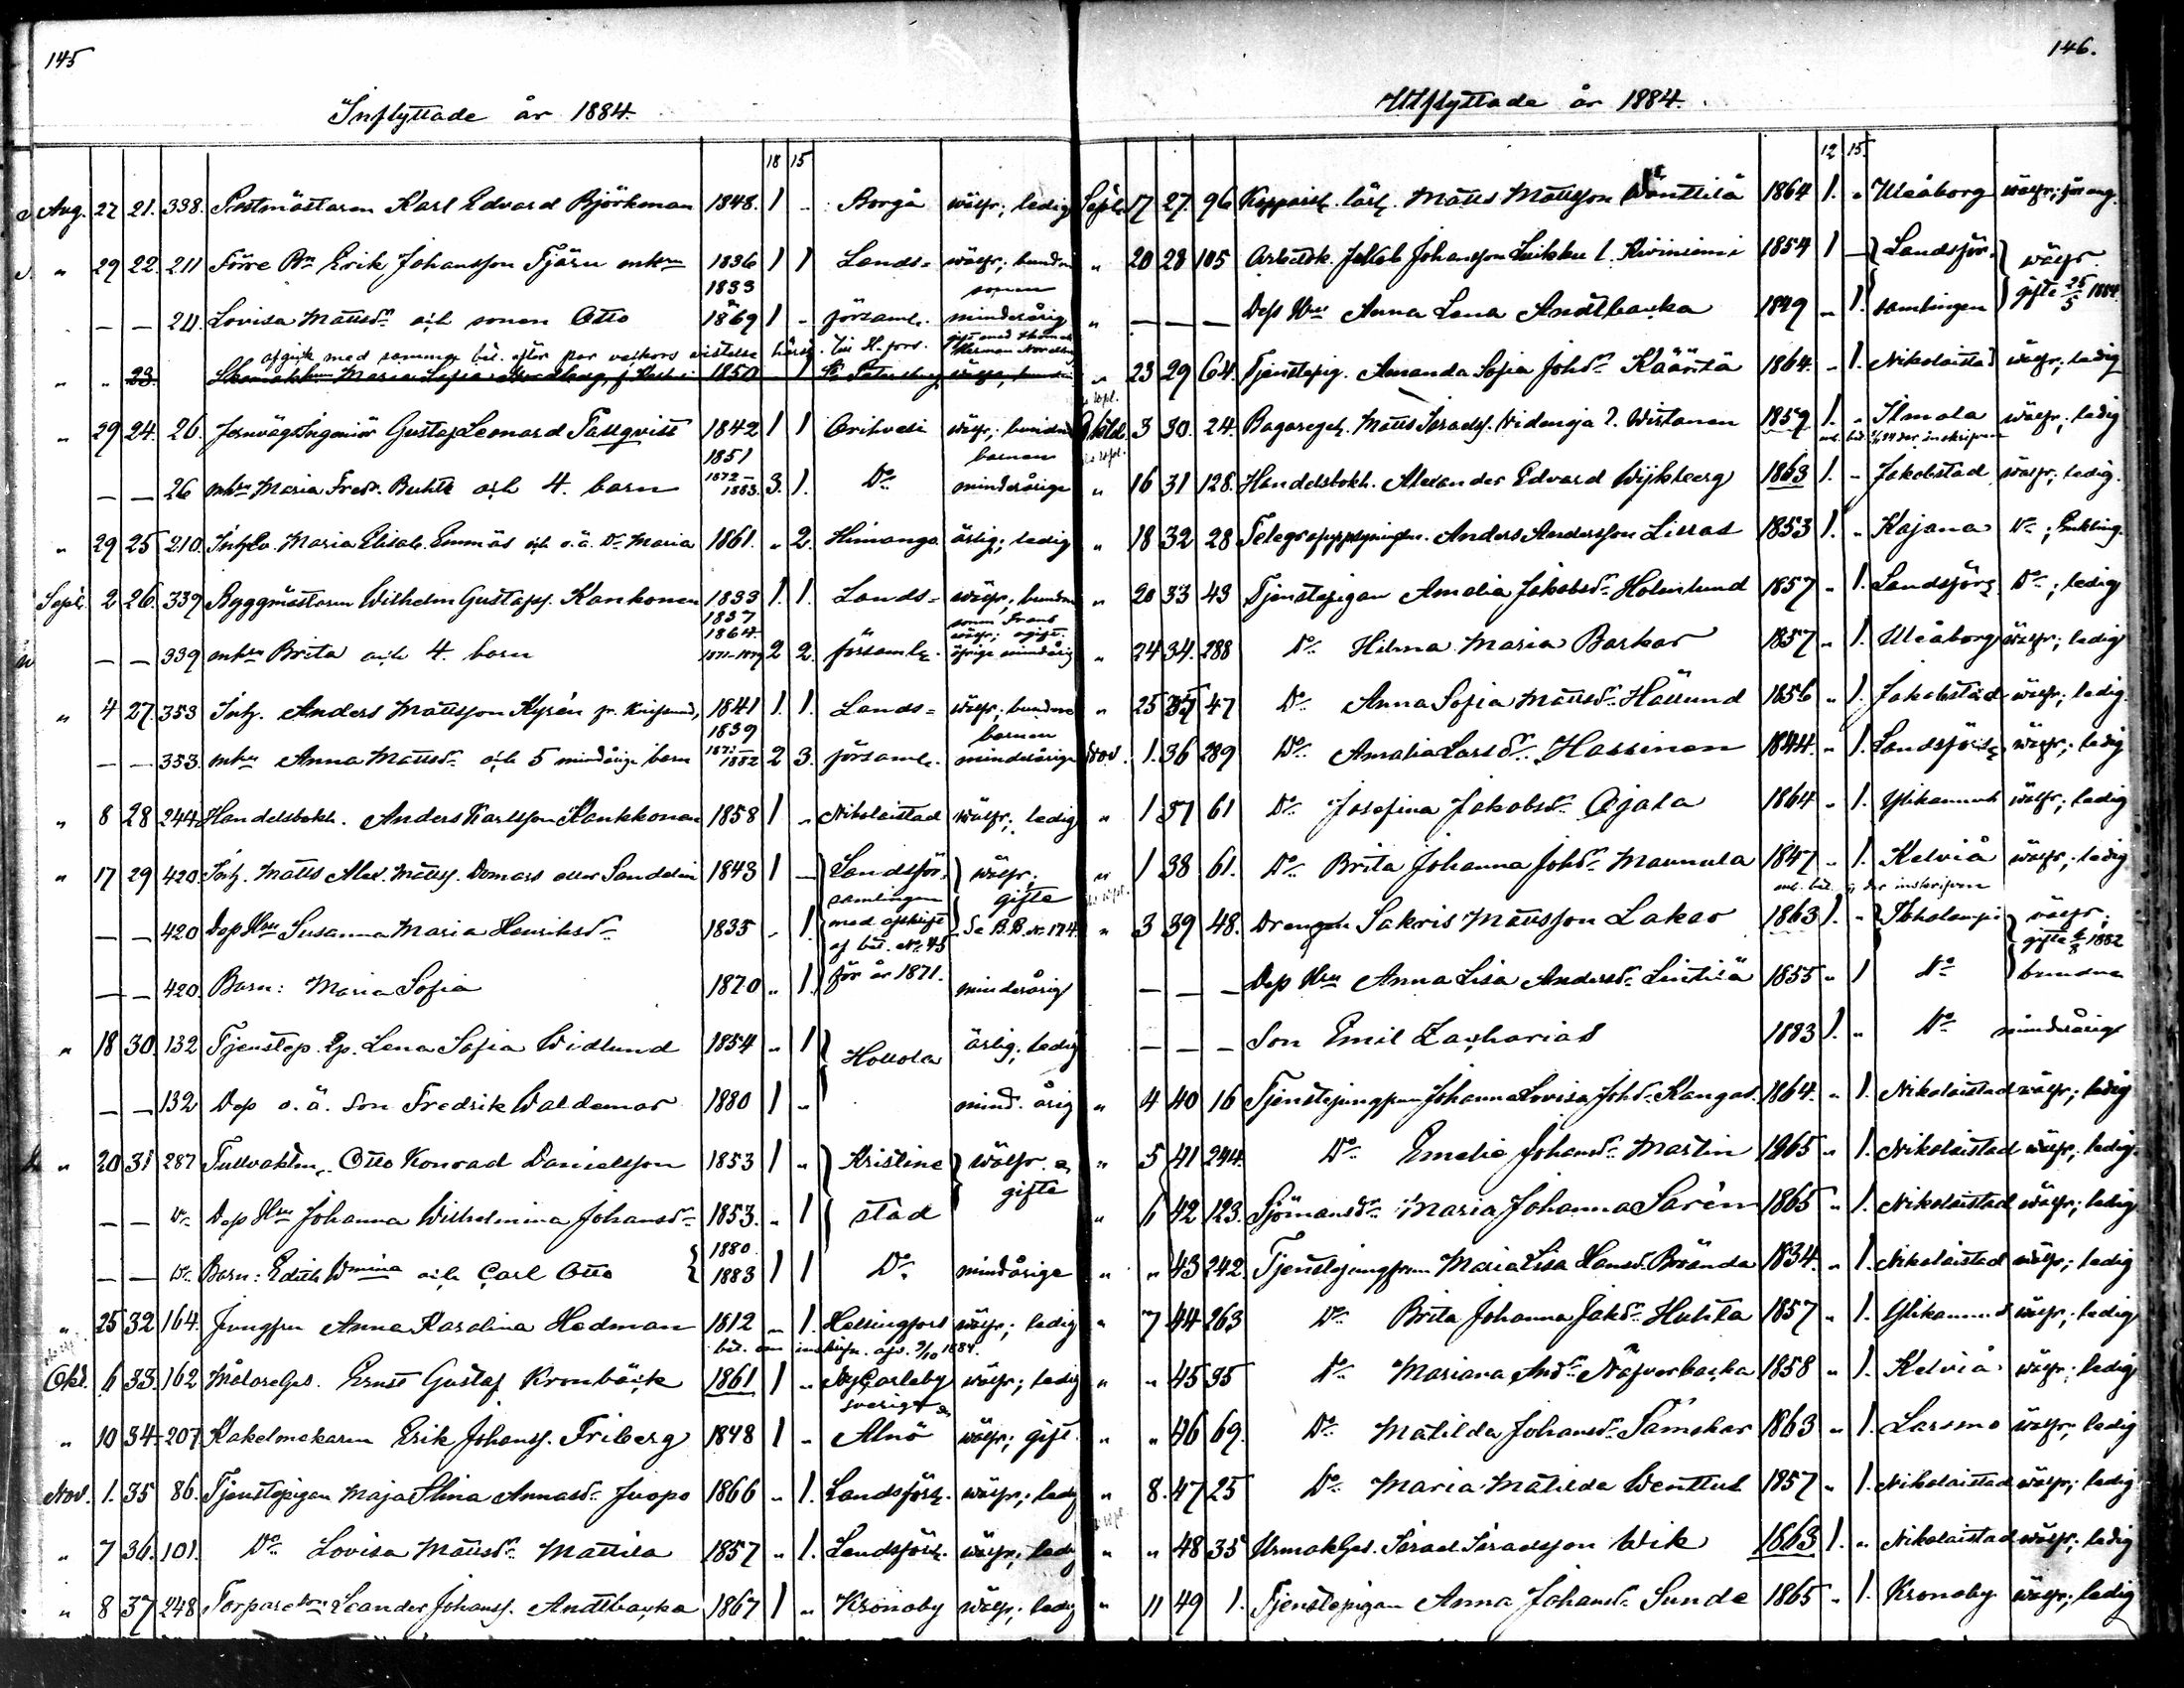 145
Inflyttade år 1884.
18 15
Aug. 27 21. 338. Postmästaren Karl Edvard Björkman 1848. 1 " Borgå wälfr; ledig
" 29 22. 211 Förre Bn Erik Johansson Tjäru mhru 1836 1 1 Lands= wälfr; bundna
1833 sonen
— — 211 Lovisa Mattsdr och sonen Otto 1869 1 " församl. minderårig
afgick med samma bet. efter par veckors vistelse härst. till H.fors.
" " 23. Maria Sofia Nordberg 1850 1 St Petersburg
" 29 24. 26. Jernvägs Ingeniör Gustaf Leonard Tallqvist 1842 1 1 Orihvesi wälfr; bundna
1851 barnen
— — 26 mhru Maria Fredr. Buhtt och 4. barn 1872–1883. 3. 1. Do minderårige
" 29 25 210. Maria Elisab. Emmäs och o.ä. Dr Maria 1861. " 2. Himango ärlig; ledig
Sept. 2 26. 339 Byggmästaren Wilhelm Gustafss. Kankonen 1833 1. 1. Lands= wälfr; bundna
1837 sonen Frans
1864. wälfr; ogift.
— — 339 mhru Brita och 4. barn 1871–1879 2 2. församlg. öfrige minderårig
" 4 27. 353 Inh. Anders Mattsson Kyrén 1841 1. 1. Lands= wälfr; bundna
1839 barnen
— — 353. mhru Anna Mattsdr och 5 minderårige barn 1882 2 3. församl. minderårige
" 8 28 244 Handelsbokh. Anders Karlsson Kankkonen 1858 1 " Nikolaistad wälfr; ledig
" 17 29 420. Inh. Matts Alex. Mattss. Domars eller Sandelin 1843 1 — Landsför= wälfr.
samlingen gifte
— — 420 Dess Hru Susanna Maria Henriksdr 1835 " 1. med afskrift Se B.B. No 174
af bet. No 45
— — 420. Barn: Maria Sofia 1870 " 1. för år 1871. minderårig
" 18 30. 132 Tjenstep. Lena Sofia Widlund 1854 " 1 Hollola ärlig; ledig
— — 132 Dess o.ä. Son Fredrik Waldemar 1880 1 " mind. årig
" 20 31 287 Tullvaktm. Otto Konrad Danielsson 1853 1 " Kristine wälfr. &
gifte
— — Do Dess Hru Johanna Wilhelmina Johansdr 1853. " 1 stad
1880.
— — Do Barn: Edith Wmina och Carl Otto 1883 1 1 Do mindårige
" 25 32 164. Jungfru Anna Karolina Hedman 1812 " 1. Helsingfors wälfr; ledig
Okt. 6 33. 162 Målareges. Ernst Gustaf Kronbäck 1861 1 " NyCarleby wälfr; ledig
Sverige
" 10 34. 207 Kakelmakaren Erik Johanss. Friberg 1848 1 " Alnö wälfr; gift
Nov. 1. 35 86. Tjenstepigan Maja Stina Annasdr Juopo 1866 " 1. Landsförs. wälfr; ledig
" 7 36. 101. Do Lovisa Mattsdr Mattila 1857 " 1. Landsförs. wälfr; ledig
" 8 37 248 Leander Johanss. Andtbacka 1867 1 " Kronoby wälfr; ledig
146.
Utflyttade år 1884.
12 15.
Sept. 17 27. 96 Matts Mattsson Wänttilä 1864 1. " Uleåborg
" 20 28 105 Arbetsk. Jakob Johansson Luikku l. Kiviniemi 1854 1 — Landsför= wälfr
" — — — Dess Hru Anna Lena Andtbacka 1849 " 1. samlingen gifte 25/5 1884.
" 23 29 64. Tjenstepig. Amanda Sofia Johsdr Kääntä 1864. " 1. Nikolaistad wälfr; ledig
Oktbr 3 30. 24. Bagareges. Matts Israelss. Wistanen 1859 1. " Ilmola wälfr; ledig
" 16 31 128. Handelsbokh. Alexander Edvard Wijkberg 1863 1. " Jakobstad wälfr; ledig.
" 18 32 28 Anders Andersson Lissas 1853 1. " Kajana Do; Enkling.
" 20 33 43 Tjenstepigan Amalia Jakobsdr Holmlund 1857 " 1. Landsförs. Do; ledig
" 24 34. 288 Do Hilma Maria Backar 1857 " 1. Uleåborg wälfr; ledig
" 25 35 47 Do Anna Sofia Mattsdr Hällund 1856 " 1. Jakobstad wälfr; ledig.
Nov. 1. 36 289 Do Amalia Larsdr Hassinen 1844. " 1. Landsförs. wälfr; ledig
" 1 37 61 Do Josefina Jakobsdr Ojala 1864 " 1. Ylikannus wälfr; ledig
" 1 38 61. Do Brita Johanna Johsdr Mannula 1847 " 1. Kelviå wälfr; ledig
" 3 39 48. Drengen Sakris Mattsson Lakar 1863 1. " Toholampi wälfr.
gifte 1882
— — — Dess Hru Anna Lisa Andersdr Lintilä 1855 " 1 Do bundna
— — — Son Emil Zacharias 1883 1. " Do minderårige
" 4 40 16 Tjenstejungfrun Johanna Lovisa Johsdr Kangas. 1864. " 1. Nikolaistad wälfr; ledig
" 5 41 244. Do Emelie Johansdr Martin 1865 " 1. Nikolaistad wälfr; ledig.
" 6 42 123. Sjömansdr Maria Johanna Sarén 1865 " 1. Nikolaistad wälfr; ledig
" " 43 242. Tjenstejungfrun Maria Lisa Hansdr Brända 1834. " 1. Nikolaistad wälfr; ledig
" 7 44 263 Do Brita Johanna Jakdr Huhta 1857 " 1. Ylikannus wälfr; ledig
" " 45 35 Do Mariana Andr Näfverbacka 1858 " 1. Kelviå wälfr; ledig
" " 46 69. Do Matilda Johansdr Sämskar 1863 " 1. Larsmo wälfr; ledig
" 8. 47 25 Do Maria Matilda Wenttus 1857 " 1. Nikolaistad wälfr; ledig
" " 48 35 UrmakGes. Israel Israelsson Wik 1863 1. " Nikolaistad wälfr; ledig
" 11 49 1. Tjenstepigan Anna Johansdr Sunde 1865 " 1. Kronoby wälfr; ledig